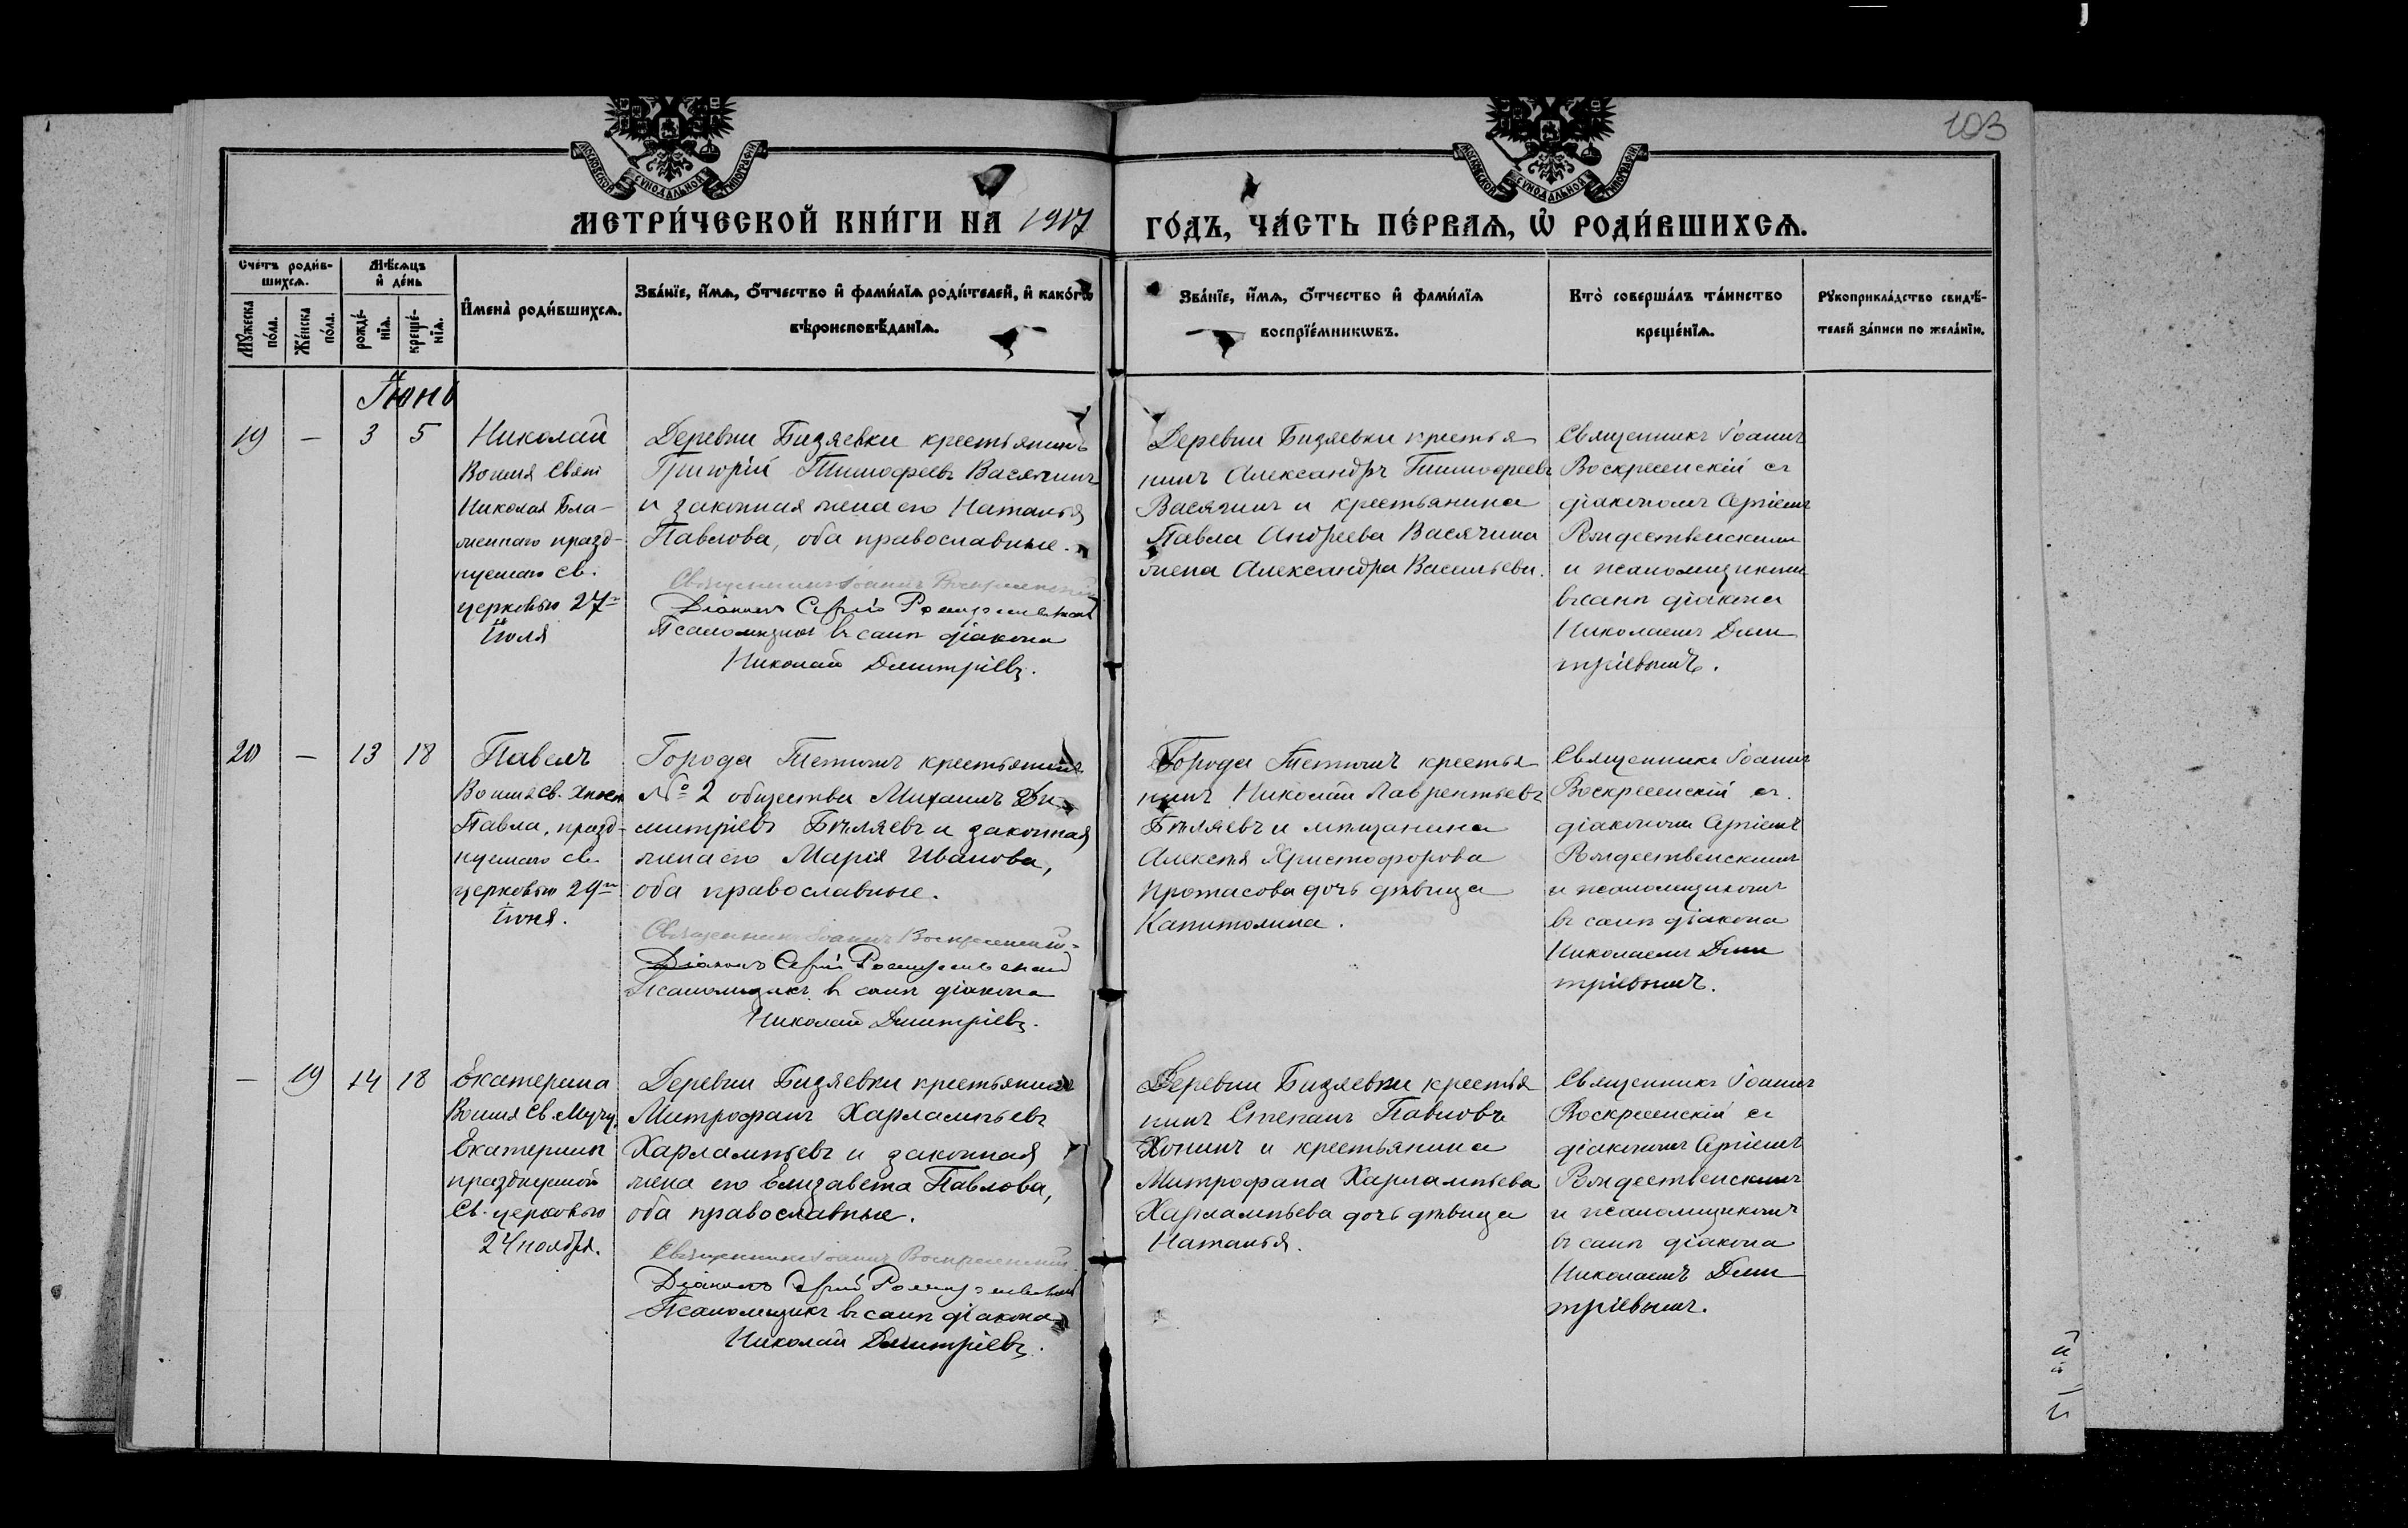 103
МОСКОВСКОЙ СѴНОДАЛЬНОЙ ТИПОГРАФІИ
МОСКОВСКОЙ СѴНОДАЛЬНОЙ ТИПОГРАФІИ
МЕТРИ́ЧЕСКОЙ КНИ́ГИ НА 1917
ГО́ДЪ, ЧА́СТЬ ПЕ́РВАѦ, Ѡ РОДИ́ВШИХСѦ.
Сче́тъ роди́в-
шихсѧ.
Мꙋжеска по́ла.
Же́нска по́ла.
Мѣ́сѧцъ
и҆ де́нь
рожде́-
нїѧ.
креще́-
нїѧ.
И҆мена̀ роди́вшихсѧ.
Зва́нїе, и҆́мѧ, ѻ҆́тчество и҆ фами́лїѧ роди́телей, и҆ како́гѡ
вѣроисповѣ́данїѧ.
Зва́нїе, и҆́мѧ, ѻ҆́тчество и҆ фами́лїѧ
воспрїе́мникѡвъ.
Кто̀ соверша́лъ та́инство
креще́нїѧ.
Рꙋкоприкла́дство свидѣ́-
телей за́писи по жела́нїю.
Іюнь
19 — 3 5
Николай
Во имя Свят
Николая Бла-
женнаго празд-
нуемаго св.
церковью 27го
Іюля
Деревни Бизяевки крестьянинъ
Григорій Тимофеевъ Васячинъ
и законная жена его Наталья
Павлова, оба православные.
Священникъ Іоаннъ Воскресенскій
Діаконъ Сергій Рождественскій
Псаломщикъ въ санѣ діакона
Николай Димитріевъ.
Деревни Бизяевки крестья
нинъ Александръ Тимофеевъ
Васячинъ и крестьянина
Павла Андреева Васячина
жена Александра Васильева.
Священникъ Іоаннъ
Воскресенскій съ
діакономъ Сергіемъ
Рождественскимъ
и псаломщикомъ
въ санѣ діакона
Николаемъ Дими
тріевымъ.
20 — 13 18
Павелъ
Во имя св. Апост
Павла, празд-
нуемаго св.
церковью 29го
Іюня.
Города Тетюшъ крестьянинъ
№ 2 общества Михаилъ Ди
митріевъ Бѣляевъ и законная
жена его Марія Иванова,
оба православные.
Священникъ Іоаннъ Воскресенскій
Діаконъ Сергій Рождественскій
Псаломщикъ въ санѣ діакона
Николай Димитріевъ.
Города Тетюшъ крестья
нинъ Николай Лаврентьевъ
Бѣляевъ и мѣщанина
Алексѣя Христофорова
Протасова дочь дѣвица
Капитолина.
Священникъ Іоаннъ
Воскресенскій съ
діакономъ Сергіемъ
Рождественскимъ
и псаломщикомъ
въ санѣ діакона
Николаемъ Дими
тріевымъ.
— 19 14 18
Екатерина
Во имя Св. Муч.
Екатерины
празднуемой
Св. церковью
24 ноября.
Деревни Бизяевки крестьянинъ
Митрофанъ Харлампьевъ
Харлампьевъ и законная
жена его Елизавета Павлова,
оба православные.
Священникъ Іоаннъ Воскресенскій
Діаконъ Сергій Рождественскій
Псаломщикъ въ санѣ діакона
Николай Димитріевъ.
Деревни Бизяевки крестья
нинъ Степанъ Павловъ
Хонинъ и крестьянина
Митрофана Харлампьева
Харлампьева дочь дѣвица
Наталья.
Священникъ Іоаннъ
Воскресенскій съ
діакономъ Сергіемъ
Рождественскимъ
и псаломщикомъ
въ санѣ діакона
Николаемъ Дими
тріевымъ.